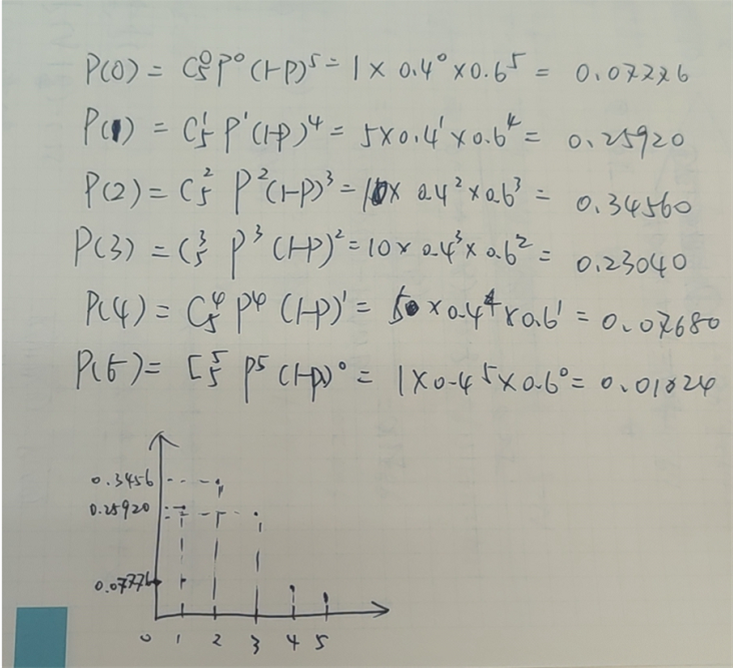 P(0) = C₅⁰ P⁰ (1-P)⁵ = 1 × 0.4⁰ × 0.6⁵ = 0.07776
P(1) = C₅¹ P¹ (1-P)⁴ = 5 × 0.4¹ × 0.6⁴ = 0.25920
P(2) = C₅² P² (1-P)³ = 10 × 0.4² × 0.6³ = 0.34560
P(3) = C₅³ P³ (1-P)² = 10 × 0.4³ × 0.6² = 0.23040
P(4) = C₅⁴ P⁴ (1-P)¹ = 5 × 0.4⁴ × 0.6¹ = 0.07680
P(5) = C₅⁵ P⁵ (1-P)⁰ = 1 × 0.4⁵ × 0.6⁰ = 0.01024
0.3456
0.25920
0.07776
0 1 2 3 4 5